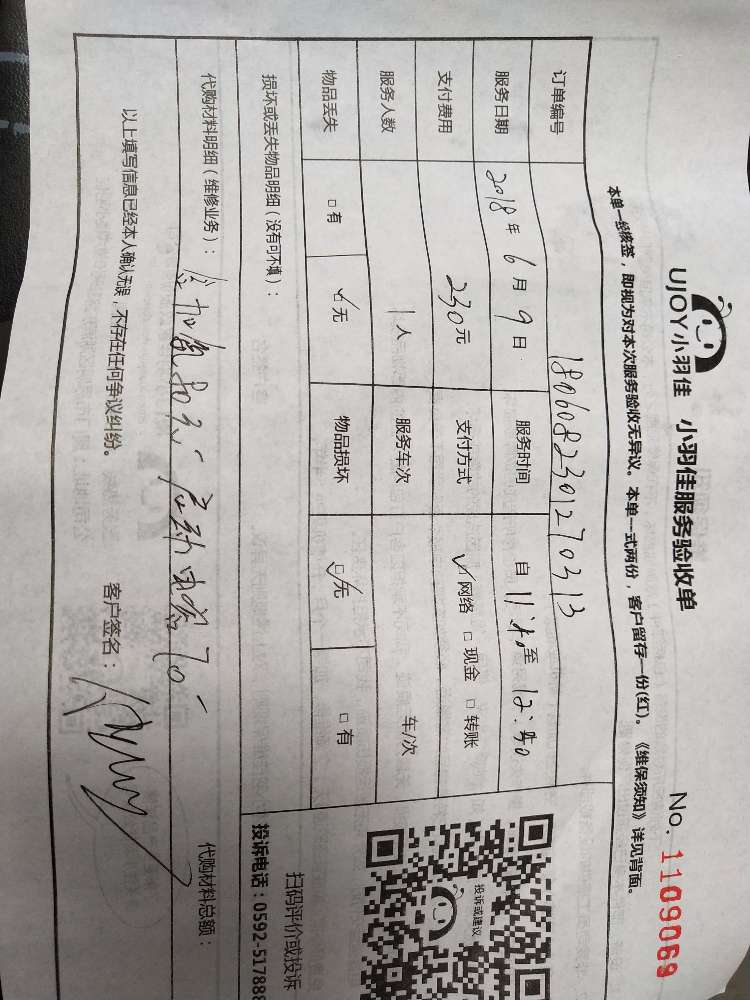 UJOY小羽佳 小羽佳服务验收单 No. 1109069
本单一经核签，即视为对本次服务验收无异议。本单一式两份，客户留存一份(红)。《维保须知》详见背面。
订单编号 180608230127 0313
服务日期 2018年6月9日 服务时间 自11:40至12:40
支付费用 230元 支付方式 ✓网络 □现金 □转账
服务人数 1人 服务车次 车/次
物品丢失 □有 ☑无 物品损坏 ☑无 □有
损坏或丢失物品明细（没有可不填）：
代购材料明细（维修业务）： 启动电容70
代购材料总额：
以上填写信息已经本人确认无误，不存在任何争议纠纷。 客户签名：
投诉或建议
扫码评价或投诉
投诉电话：0592-517888